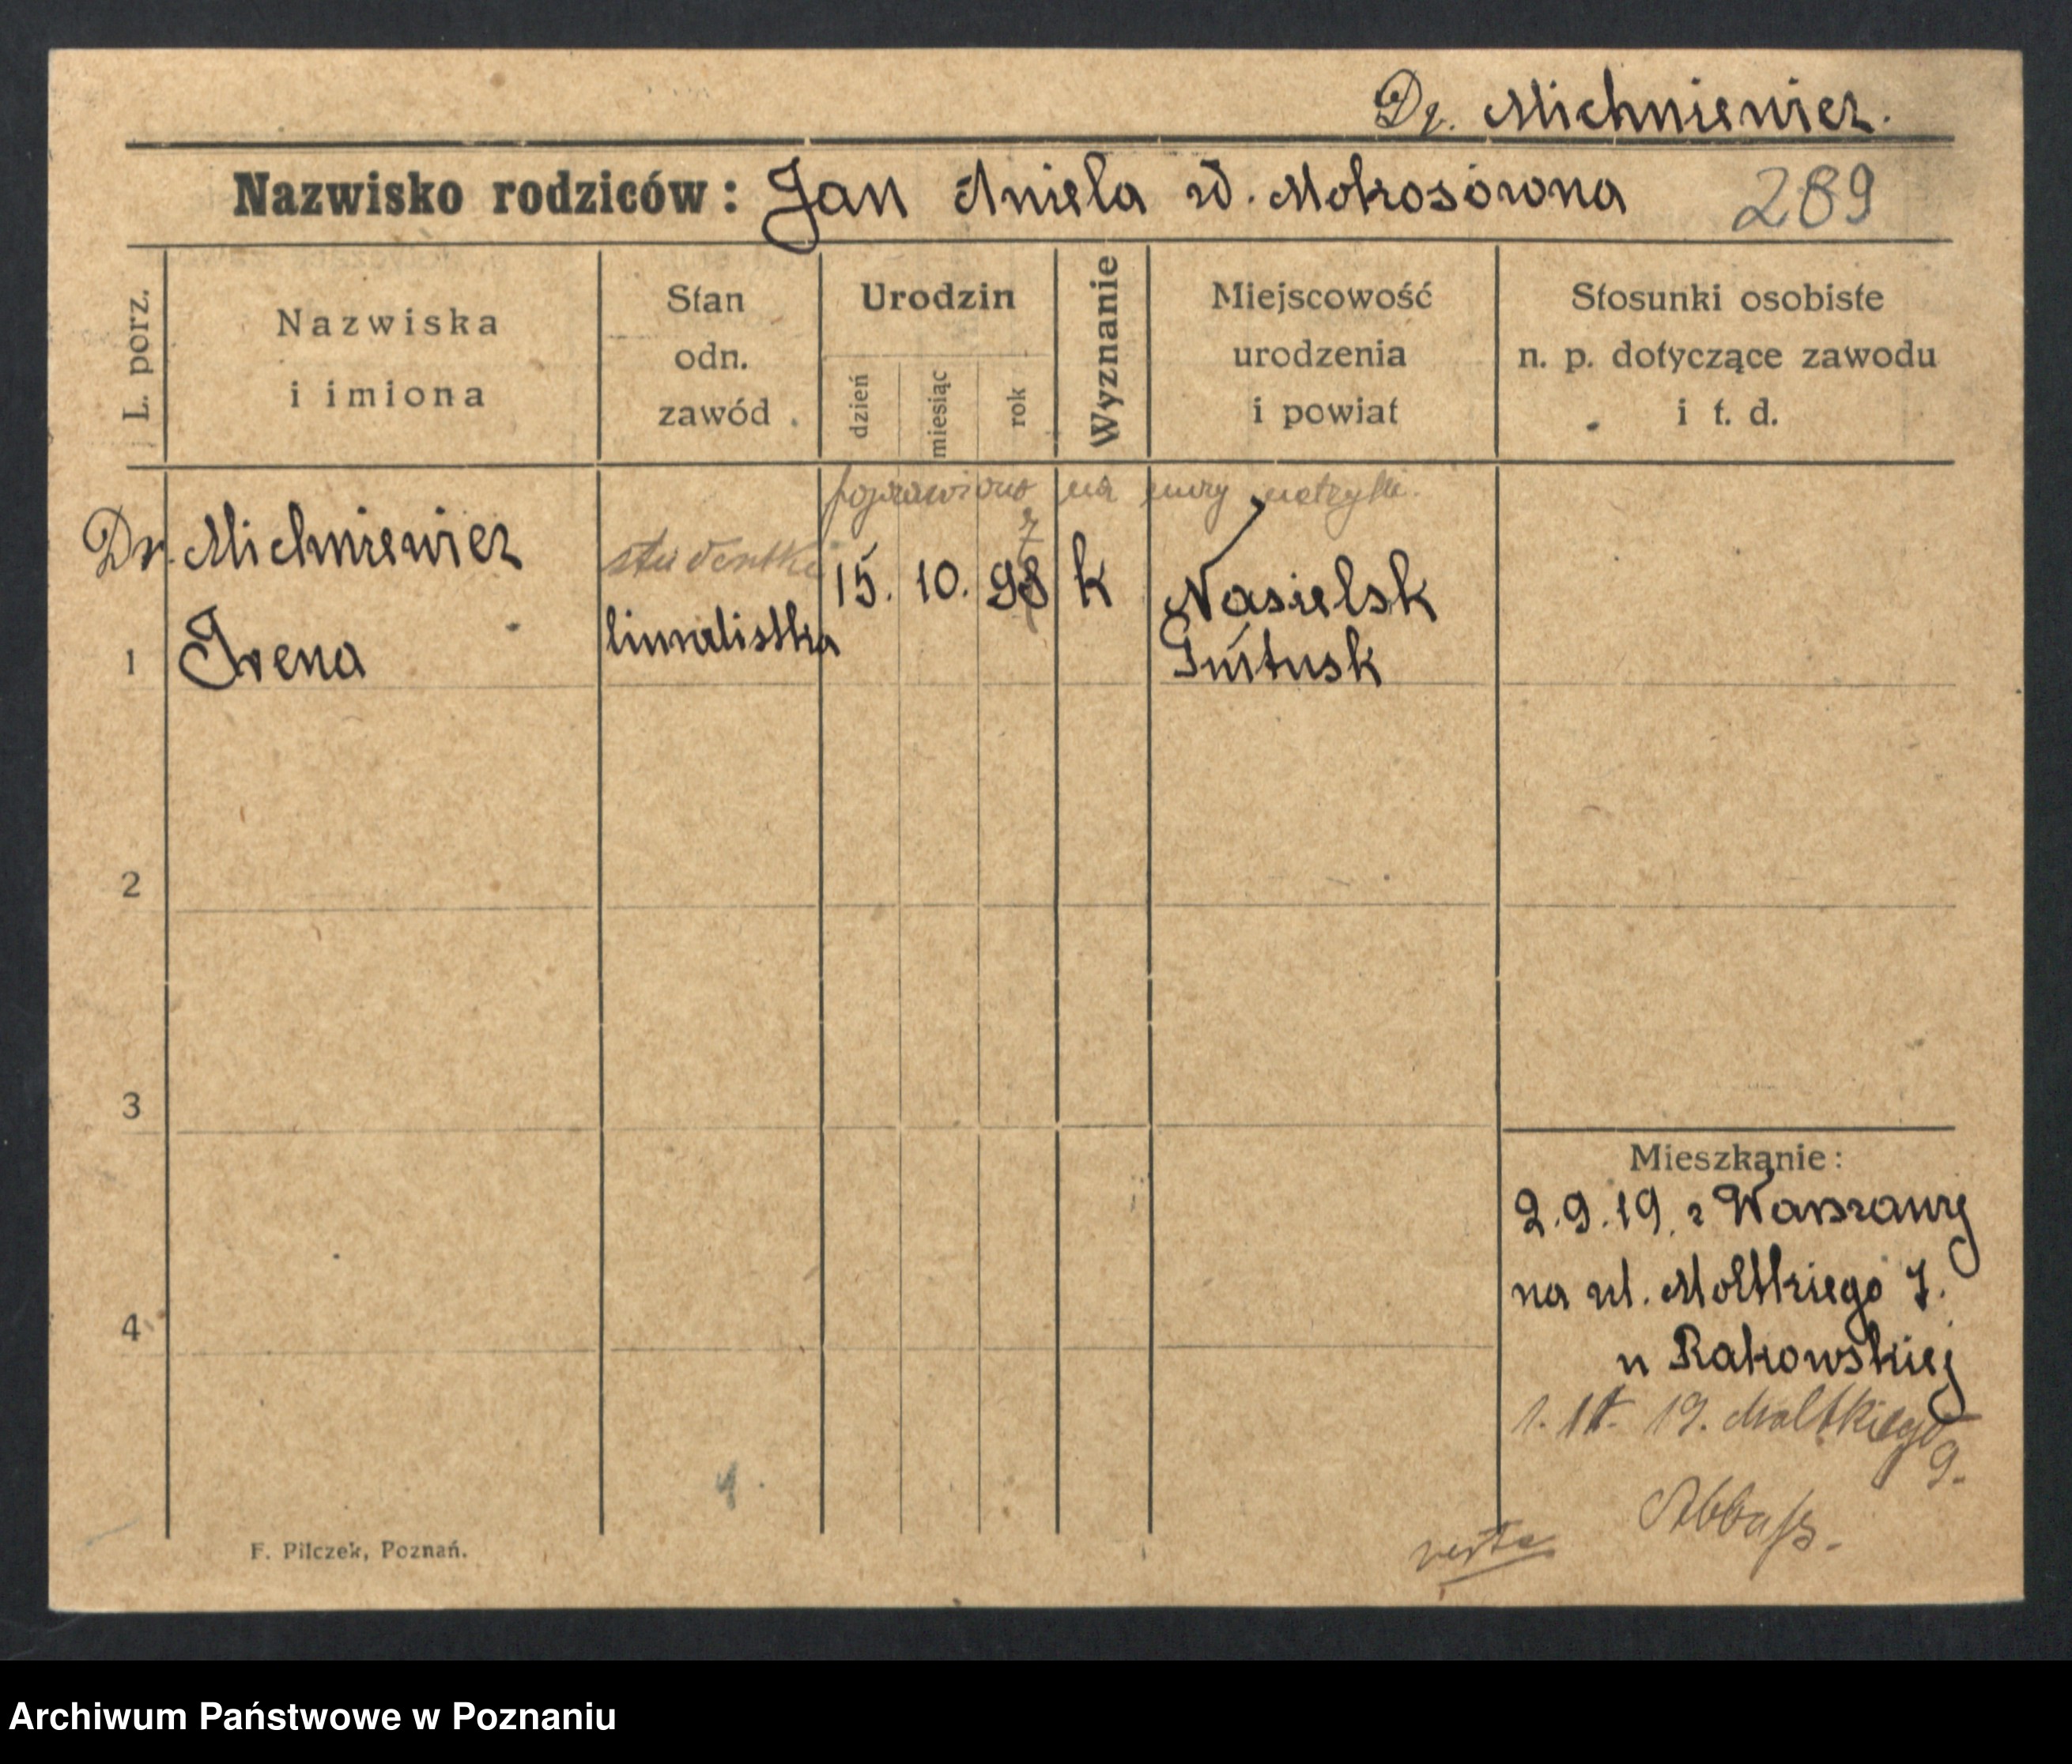 Dr. Michniewicz.
Nazwisko rodziców: Jan Aniela ur. Mokosówna 289
L. porz.
Nazwiska
i imiona
Stan
odn.
zawód
Urodzin
dzień
miesiąc
rok
Wyznanie
Miejscowość
urodzenia
i powiat
Stosunki osobiste
n. p. dotyczące zawodu
i t. d.
poprawiono na mocy metryki.
Dr. Michniewicz
Irena
studentka
15. 10. 98 k
7
Nasielsk
1
2
3
4
Mieszkanie:
2.9.19. z Warszawy
na ul. Moltkiego 7.
u Rakowskiej
19. Moltkiego
9.
verte
F. Pilczek, Poznań.
Archiwum Państwowe w Poznaniu